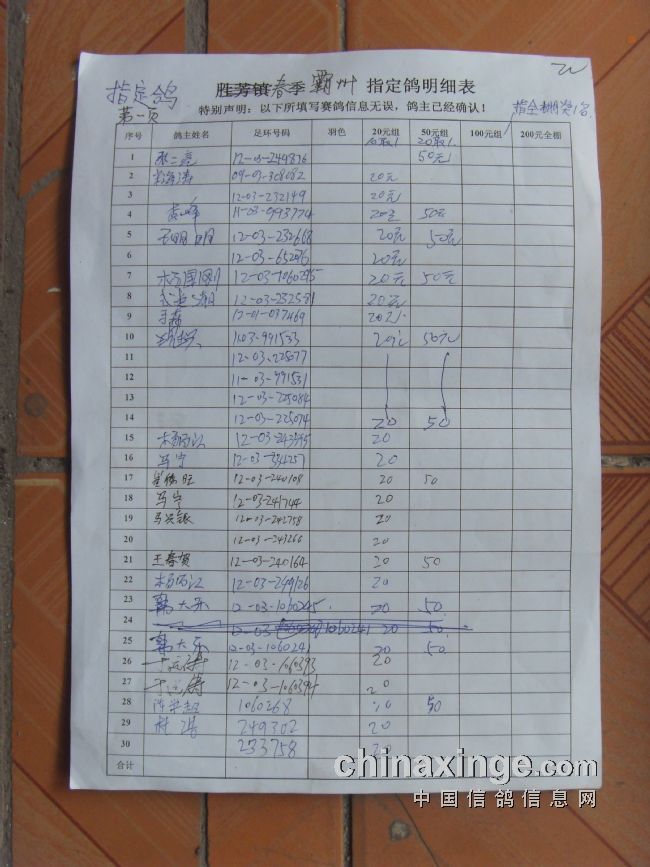 指定鸽
第一页
胜芳镇春季霸州指定鸽明细表
特别声明：以下所填写赛鸽信息无误，鸽主已经确认！
序号 鸽主姓名 足环号码 羽色 20元组 50元组 100元组 200元全棚
10取1 20取1
1 12-03-249876 50元
2 09-07-308082 20元
3 12-03-232149 20元
4 11-03-993774 20元 50元
5 王明明 12-03-232668 20元 50元
6 12-03-65296 20元
7 杨国刚 12-03-1060295 20元 50元
8 12-03-232581 20元
9 12-01-037469 20元
10 1103-991533 20元 50元
11 12-03-225077
12 11-03-991531
13 12-03-225084
14 12-03-225074 20 50
15 杨丙江 12-03-243575 20
16 马宁 12-03-334257 20
17 12-03-240108 20 50
18 马宁 12-03-241744 20
19 马兴银 12-03-242758 20
20 12-03-243266 20
21 王春贺 12-03-240164 20 50
22 杨丙江 12-03-249126 20
23 韩大乐 12-03-1060245 20 50
24 12-03 1060241 20 50
25 韩大乐 12-03-1060241 20 50
26 12-03-1060393 20
27 12-03-1060394 20
28 陈学超 1060268 20 50
29 249302 20
30 233758 20
合计
chinaxinge.com
中国信鸽信息网